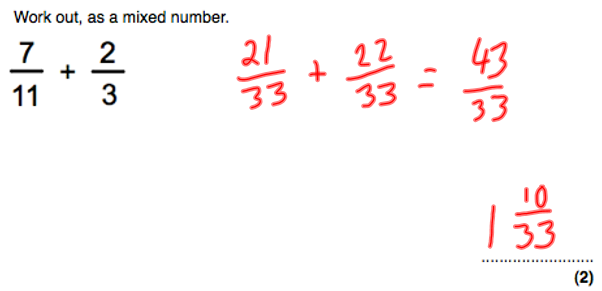 Work out, as a mixed number.
7/11 + 2/3
21/33 + 22/33 = 43/33
1 10/33
(2)